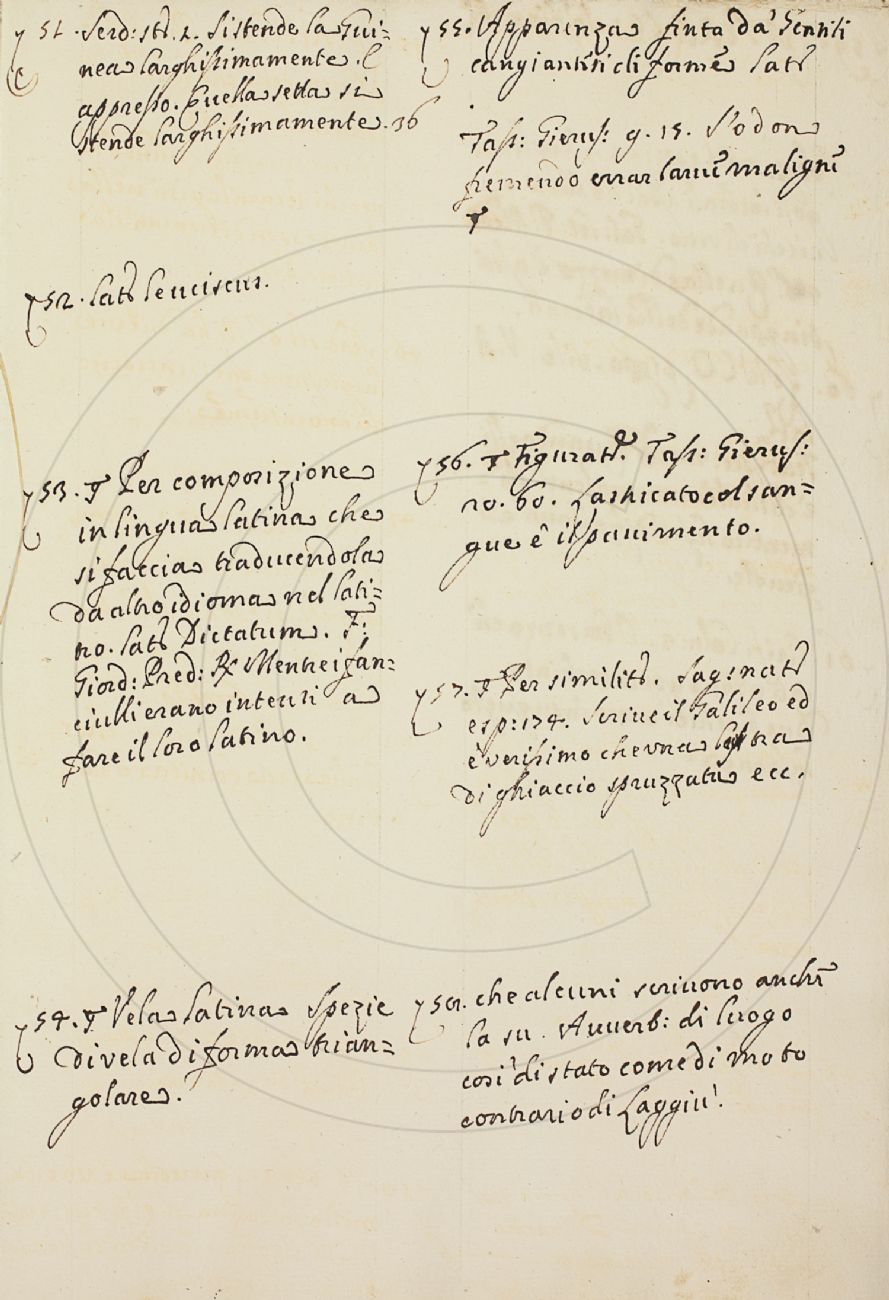 51. Serd: str. 2. Si stende la Gui=
nea larghissimamente. E
appresso. Quella setta si
stende larghissimamente. 36
52. Lat. leuciscus.
53. ¶ Per composizione
in lingua latina che
si faccia traducendola
da altro idioma nel lati=
no. Lat. Dictatum. F:
Giord: Pred: R. Mentre i fan=
ciulli erano intenti a
fare il loro latino.
54. ¶ Vela latina. Spezie
di vela di forma trian=
golare.
55. Apparenza finta da' Gentili
cangiantisi di forme Lat.
Tass: Gierus: 9. 15. S'odon
fremendo errar larve maligne
¶
56. ¶ Figurat. Tass: Gierus:
20. 60. Lastricato col san=
gue è il pavimento.
57. ¶ Per similit. Sag. nat.
esp: 174. Scrive il Galileo ed
è verisimo che vna lastra
di ghiaccio spruzzata ecc.
58. che alcuni scrivono anche
la su. Avverb: di luogo
così di stato come di moto
contrario di Laggiù.